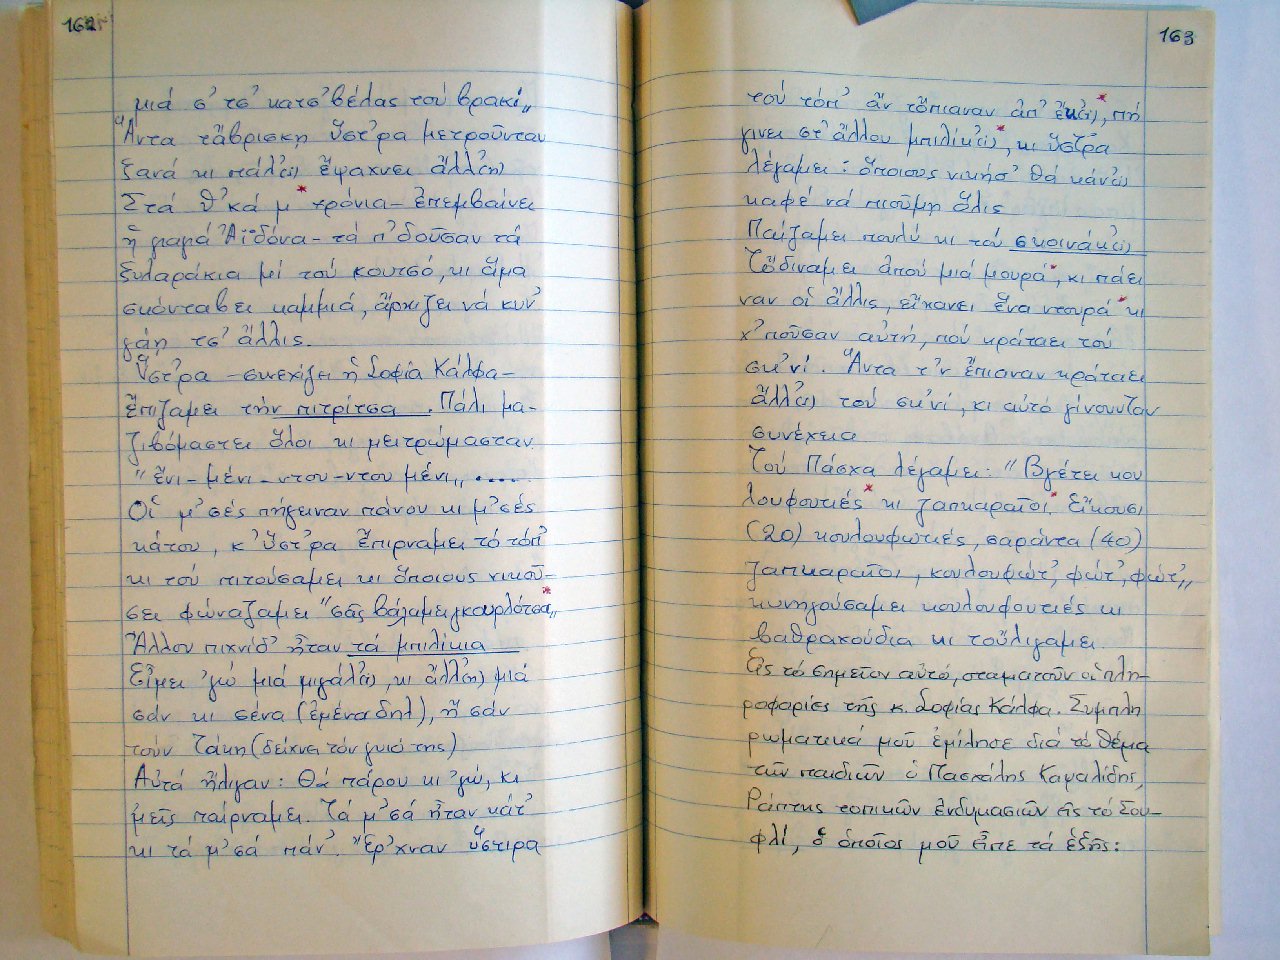 162
μιά σ' τσ' κατσ'βέλας τού βρακί,,
Ἄντα τἄβρισκη ὕστ'ρα μετροῦνταν
ξανά κι πάλ'(ι) ἔψαχνει ἄλλ'(η)
Στά θ'κά μ' *τρόνια - ἐπεμβαίνει
ἡ γιαγιά Ἀϊδόνα - τά π'δοῦσαν τά
ξυλαράκια μί τού κουτσό, κι ἅμα
σκόνταβει καμμιά, ἄρχιζει νά κυν'
γάη τσ' ἄλλις.
Ὕστ'ρα - συνεχίζει ἡ Σοφία Κάλφα -
ἔπιζαμει τήν πιτρίτσα. Πάλι μα-
ζιβόμαστει ὅλοι κι μειτρώμασταν
"ἔνι - μένι - ντου - ντου μένι,, .....
Οἱ μ'σές πήγειναν πάνου κι μ'σές
κάτου, κ' ὕστ'ρα ἔπιρναμει τό τόπ'
κι τού πιτούσαμει κι ὅποιους νικοῦ-
σει φώναζαμει "σᾶς βάλαμει γκουρλότσα*,,
Ἄλλου πιχνίδ' ἦταν τά μπιλίκια
Εἶμει 'γώ μιά μιγάλ'(ι), κι ἄλλ'(η) μιά
σάν κι σένα (ἐμένα δηλ), ἤ σάν
τούν Τάκη (δείχνει τόν γυιό της)
Αὐτά ἤλιγαν: Θά πάρου κι 'γώ, κι
μεῖς παίρναμει. Τά μ'σά ἦταν κάτ'
κι τά μ'σά πάν'. Ἔρ'χναν ὕστιρα
163
τού τόπ' ἄν τὄπιαναν ἀπ' ἐκ'(ι)*, πή
γινει στ' ἄλλου μπιλίκ'(ι)*, κι ὕστ'ρα
λέγαμει: ὅποιους νικήσ' θά κάν'(ι)
καφέ νά πιοῦμη ὅλις
Παίζαμει πουλύ κι τού σκοινάκ'(ι)
Τὄδιναμει ἀπού μιά μουρά*, κι πάει
ναν οἱ ἄλλις, εἴκανει ἕνα ντουρά* κι
χ'ποῦσαν αὐτή, πού κράταει τού
σκ'νί. Ἄντα τ'ν ἔπιαναν κράταει
ἄλλ'(ι) τού σκ'νί, κι αὐτό γίνουνταν
συνέχεια
Τού Πάσχα λέγαμει: "Βγέτει κου
λουφουτιές* κι ζαπκαραῖοι*. Εἴκουσι
(20) κουλουφωτιές, σαράντα (40)
ζαπκαραῖοι, κουλουφώτ', φώτ', φώτ',,
κυνηγούσαμει κουλουφουτιές κι
βαθρακούδια κι τοὔλιγαμει.
Εἰς τό σημεῖον αὐτό, σταματοῦν οἱ πλη-
ροφορίες τῆς κ. Σοφίας Κάλφα. Συμπλη
ρωματικά μοῦ ἐμίλησε διά τό θέμα
τῶν παιδιῶν ὁ Πασχάλης Καψαλίδης,
Ράπτης τοπικῶν ἐνδυμασιῶν εἰς τό Σου-
φλί, ὁ ὁποῖος μοῦ εἶπε τά ἑξῆς: